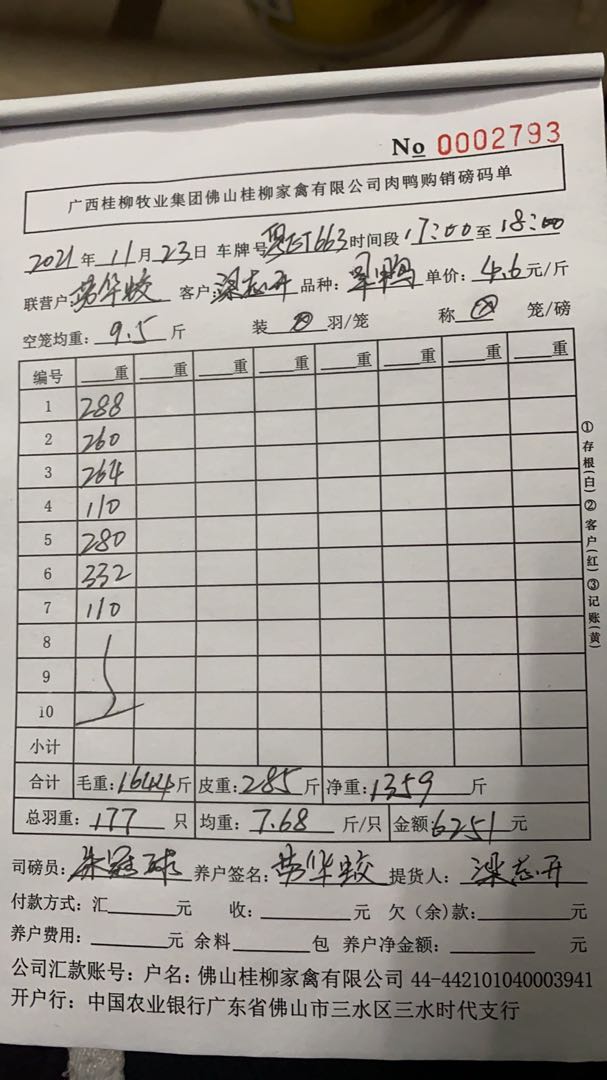 No 0002793
广西桂柳牧业集团佛山桂柳家禽有限公司肉鸭购销磅码单
2021年11月23日 车牌号 663 时间段17:00至18:00
联营户:劳华蛟 客户:梁志开 品种: 鸭 单价:4.6元/斤
空笼均重:9.5斤 装 羽/笼 称 笼/磅
编号 重 重 重 重 重 重 重 重
1 288
2 260
3 264
4 110
5 280
6 332
7 110
8
9
10
小计
合计 毛重:1644斤 皮重:285斤 净重:1359斤
总羽重:177只 均重:7.68斤/只 金额6251元
司磅员:朱冠球 养户签名:劳华蛟 提货人:梁志开
付款方式:汇 元 收: 元 欠(余)款: 元
养户费用: 元 余料 包 养户净金额: 元
公司汇款账号:户名:佛山桂柳家禽有限公司 44-442101040003941
开户行:中国农业银行广东省佛山市三水区三水时代支行
①存根(白)②客户(红)③记账(黄)